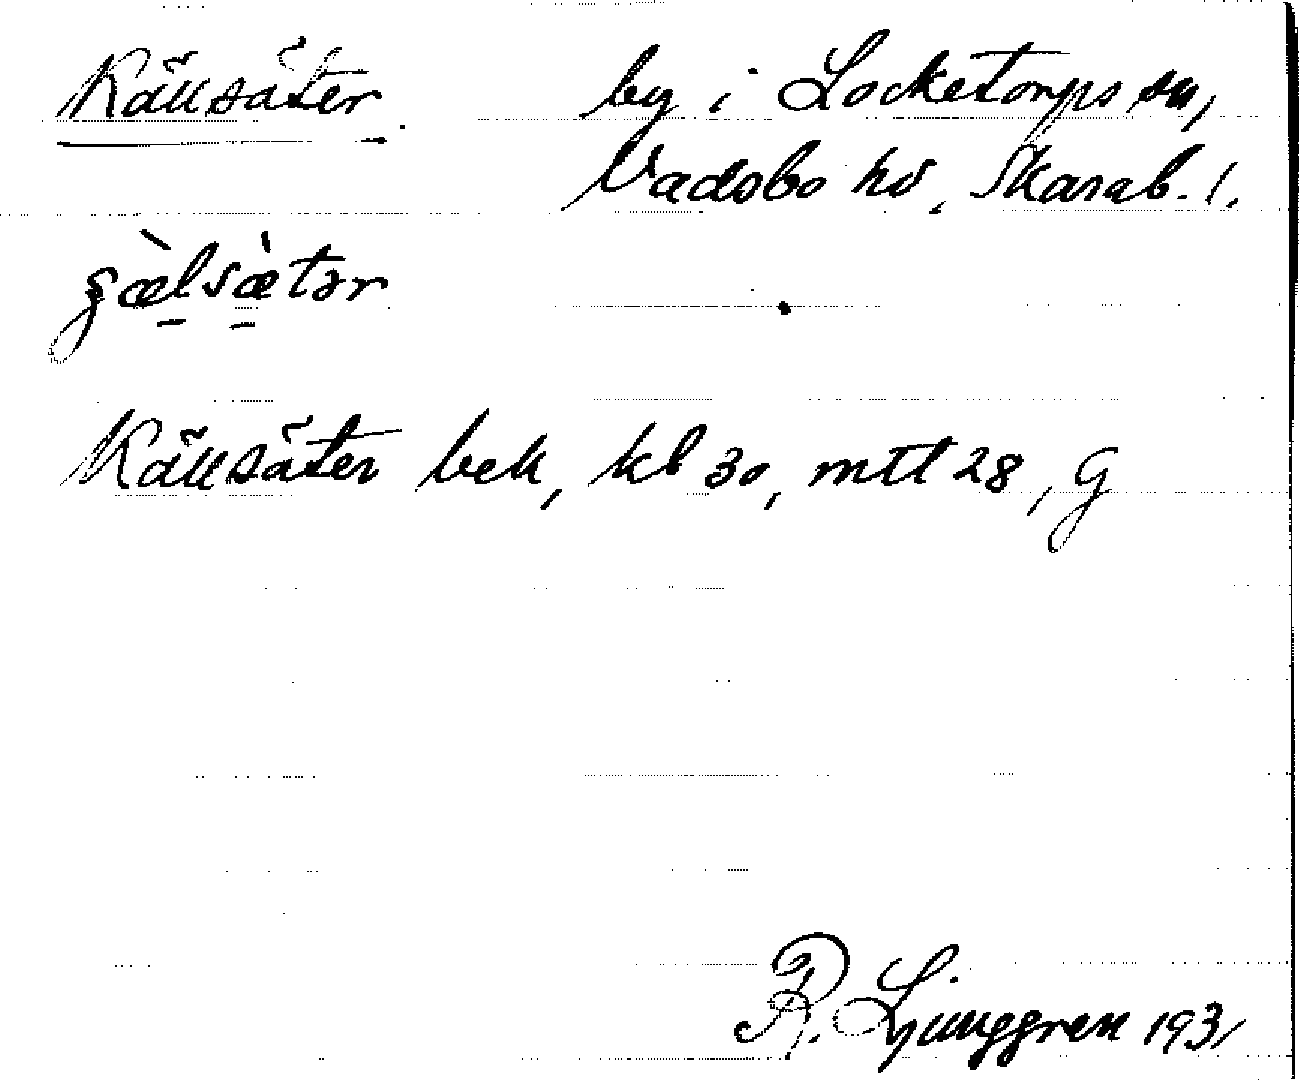 Källsäter by i Locketorps sn,
Vadsbo hd, Skarab. l.
ɕæ̀lsæ̀tər
Källsäter bek, kb 30, mtl 28, G
R. Ljunggren 1931